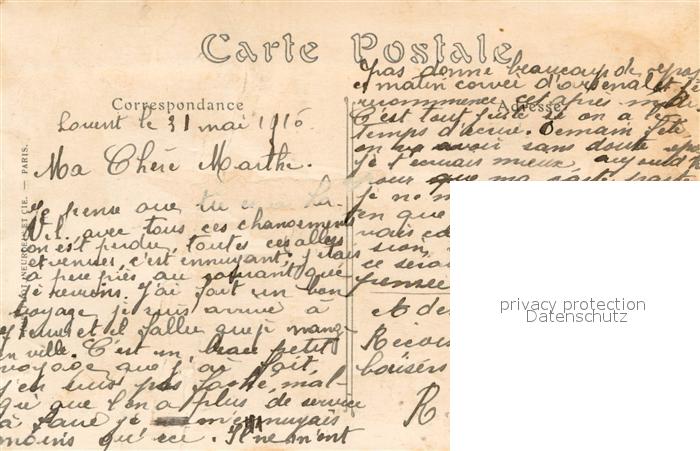 Carte Postale
Correspondance
Adresse
Lorient le 31 mai 1916
Ma Chère Marthe.
Je pense que tu es à
avec tous ces changements
on est perdu, toutes ces allées
et venues, c'est ennuyant, j'étais
à peu près au courant que
je reviens. J'ai fait un bon
voyage, je suis arrivé à
heures et il fallu que je mange
en ville. C'est un beau petit
voyage que j'ai fait,
j'en suis pas fâché, mal-
gré que l'on a plus de service
à faire je m'ennuyais
moins qu'ici. Il ne m'ont
pas donné beaucoup de repos
et matin corvée d'arsenal et
recommence cet après
C'est tout juste si on a le
temps d'écrire. Demain fête
on va avoir sans doute repos
je t'écrirais mieux, aujourd'hui
pour que ma carte parte
je ne
en que
vous
sion,
ce serait
pensée
A de
Recois
baisers
R
NEURDEIN ET CIE. — PARIS.
privacy protection
Datenschutz